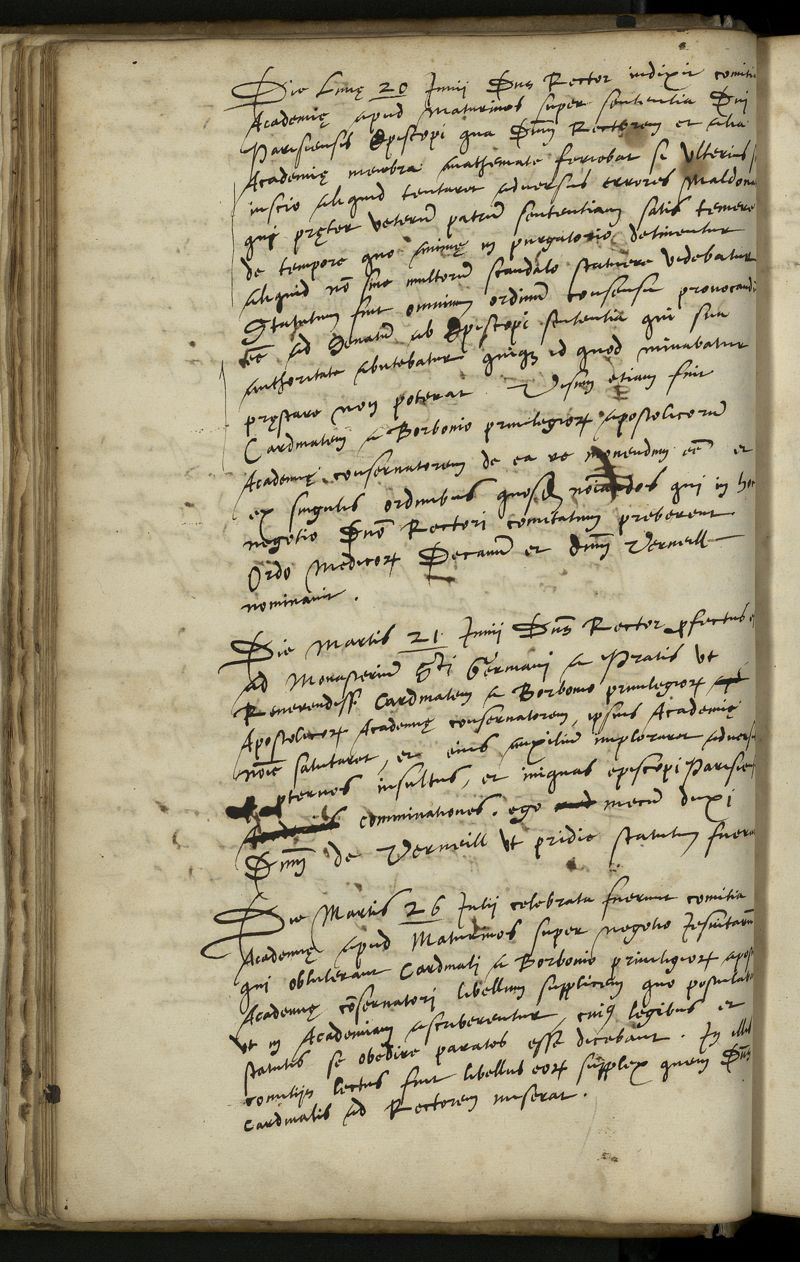 Die Lunę 20 Junij Dns Rector indixit comiti
Academię apud Maturinos super sententia Dni
Parisiensis Episcopi qua Dnm Rectorem et alia
Academię membra anathemate feriebat si ulterius
inscio aliquid tentaret adversus errores Maldon
qui pręter veterū patrū sententiam satis temere
de tempore quo animę in purgatorio detinentur
aliquid nō sine multorū scandalo statuere videbatur
Statutum fuit omnium ordinū consensu provocandū
eē ad Senatū ab Episcopi sententia qui sua
authoritate abutebatur quiq id quod minabatur
pręstare non poterat. Visum etiam fuit
Cardinalem a Borbonio privilegior apostolicorū
Academię conservatorem de ea re monendum eē et
ex singulis ordinibus quosd noiandos qui in hoc
negotio Dno Rectori comitatum preberent
Ordo Medicor Decanū et dnm Verneill
nominavit.
Die Martis 21 Junij Dns Rector pfectus e
ad Monasteriū Sti Germani a Pratis ut
Reverendiss. Cardinalem a Borbonio privilegior
Apostolicor Academię conservatorem, ipsius Academię
noie salutaret, et eius auxiliū imploraret advers
pternos insultus, et iniquas episcopi Parisien
comminationes. ego mecū duxi
Dnm de Verneill ut pridie statutum fuera
Die Martis 26 Julij celebrata fuerunt comitia
Academię apud Maturinos super negotio Jesuitarū
qui obtulerant Cardinali a Borbonio privilegior apost
Academię cōservatori libellum supplicem quo postulab
ut in Academiam ascriberentur, cuiq legibus et
statutis se obedire paratos esse dicebant. In illis
comitijs lectus fuit libellus eor supplex quem Dns
Cardinalis ad Rectorem miserat.